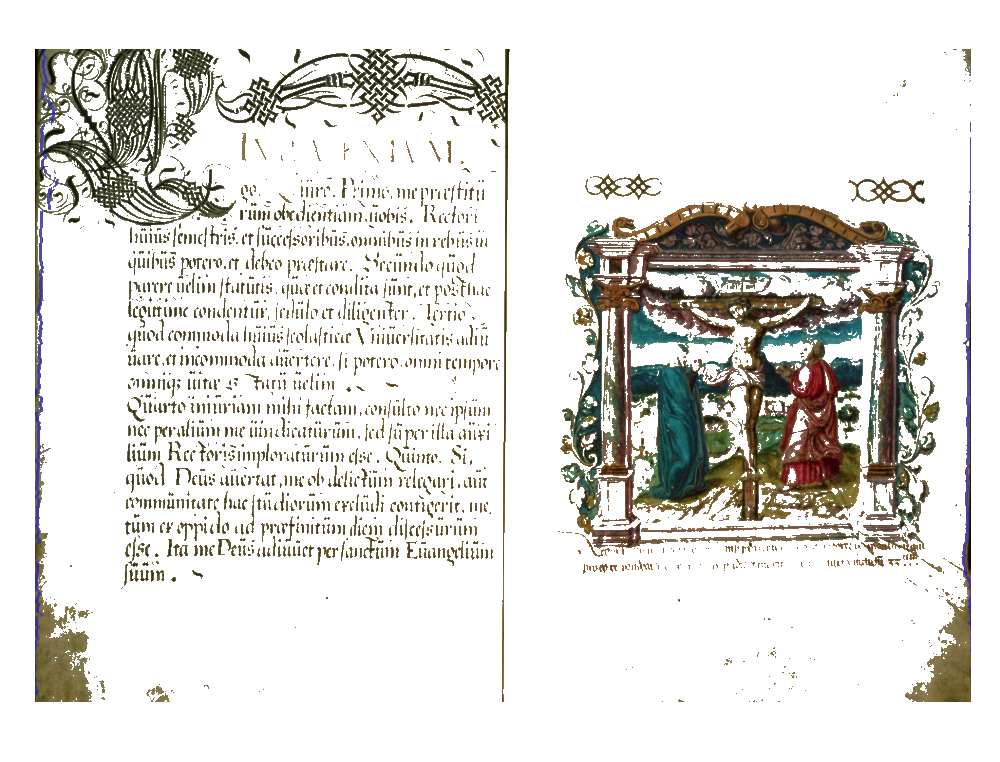 IVRAMENTVM.
go. Iuro. Primo, me præstitu
rum obedientiam uobis. Rectori
huius semestris, et successoribus, omnibus in rebus in
quibus potero, et debeo præstare. Secundo quod
parere uelim statutis, quæ et condita sunt, et posthac
legitime condentur, sedulo et diligenter. Tertio,
quod commoda huius scolasticæ Vniuersitatis adiu
uare, et incommoda auertere, si potero, omni tempore
omniq; uitæ statu uelim.
Quarto iniuriam mihi factam, consulto nec ipsum
nec per alium me uindicaturum, sed super illa auxi
lium Rectoris imploraturum esse. Quinto. Si,
quod Deus auertat, me ob delictum relegari, aut
communitate hac studiorum excludi contigerit, me,
tum ex oppido ad præfinitum diem discessurum
esse. Ita me Deus adiuuet per sanctum Euangelium
suum.